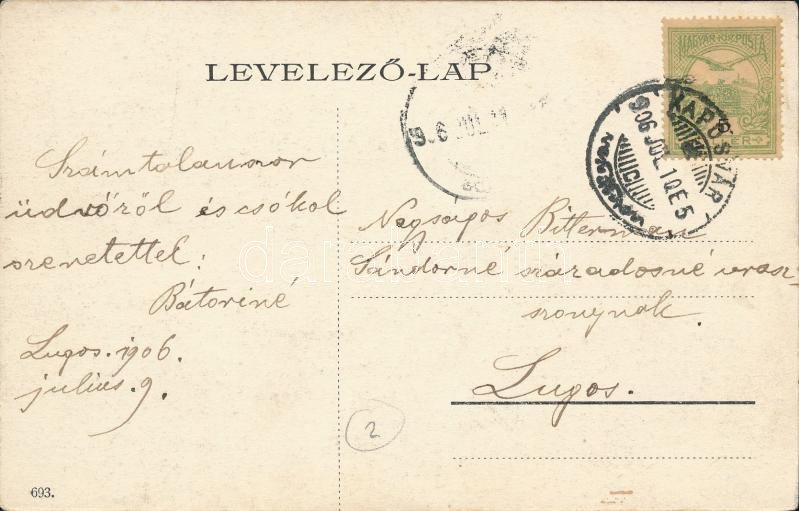 LEVELEZŐ-LAP
MAGYAR·KIR·POSTA
KAPOSVÁR
906 JUL 10 E 5
Számtalanszor
üdvözöl és csókol
szeretettel:
Bátoriné
Lugos. 1906.
julius. 9.
Nagyságos Bitterman
Sándorné századosné urasz-
szonynak.
Lugos.
2
693.